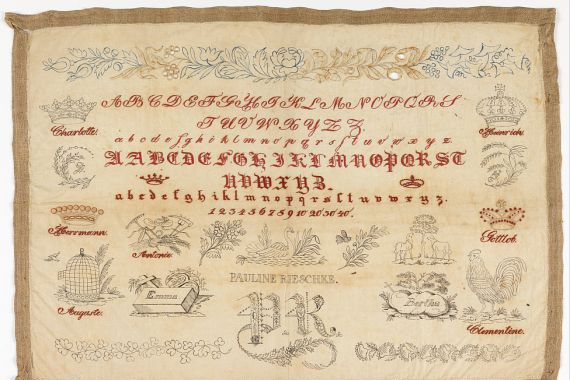 A B C D E F G H I K L M N O P Q R S
T U V W X Y Z Z.
Charlotte.
Heinrich.
a b c d e f g h i k l m n o p q r s ſ t u v w x y z.
A A B C D E F G H I K L M N O P Q R S T
U V W X Y Z.
a b c d e f g h i k l m n o p q r s ſ t u v w x y z.
1 2 3 4 5 6 7 8 9 10 20 30 40.
Herrmann.
Antonie.
Gottlob.
PAULINE RIESCHKE.
Emma
Bertha
Auguste.
P R
Clementine.